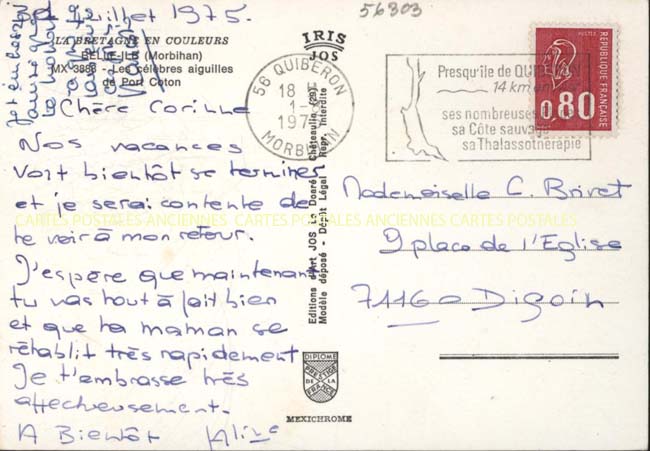 Juillet 1975.
56803
LA BRETAGNE EN COULEURS
BELLE-ILE (Morbihan)
MX 3888 - Les célèbres aiguilles
de Port Coton
Chère Corinne
Nos vacances
vont bientôt se terminer
et je serai contente de
te voir à mon retour.
J'espère que maintenant
tu vas tout à fait bien
et que ta maman se
rétablit très rapidement
Je t'embrasse très
affectueusement.
A Bientôt Aline
IRIS
JOS
Editions d'Art JOS Le Doaré - Châteaulin (29)
Modèle déposé - Dépôt Légal - Repr. Interdite
DIPLOME
PRESTIGE
DE LA
FRANCE
MEXICHROME
56 QUIBERON
18 H
197
MORBIHAN
Presqu'île de QUIBERON
14 km en
ses nombreuses
sa Côte sauvage
sa Thalassothérapie
POSTES
0,80
REPUBLIQUE FRANÇAISE
Mademoiselle C. Brivet
9 place de l'Eglise
71160 Digoin
CARTES POSTALES ANCIENNES CARTES POSTALES ANCIENNES CARTES POSTALES